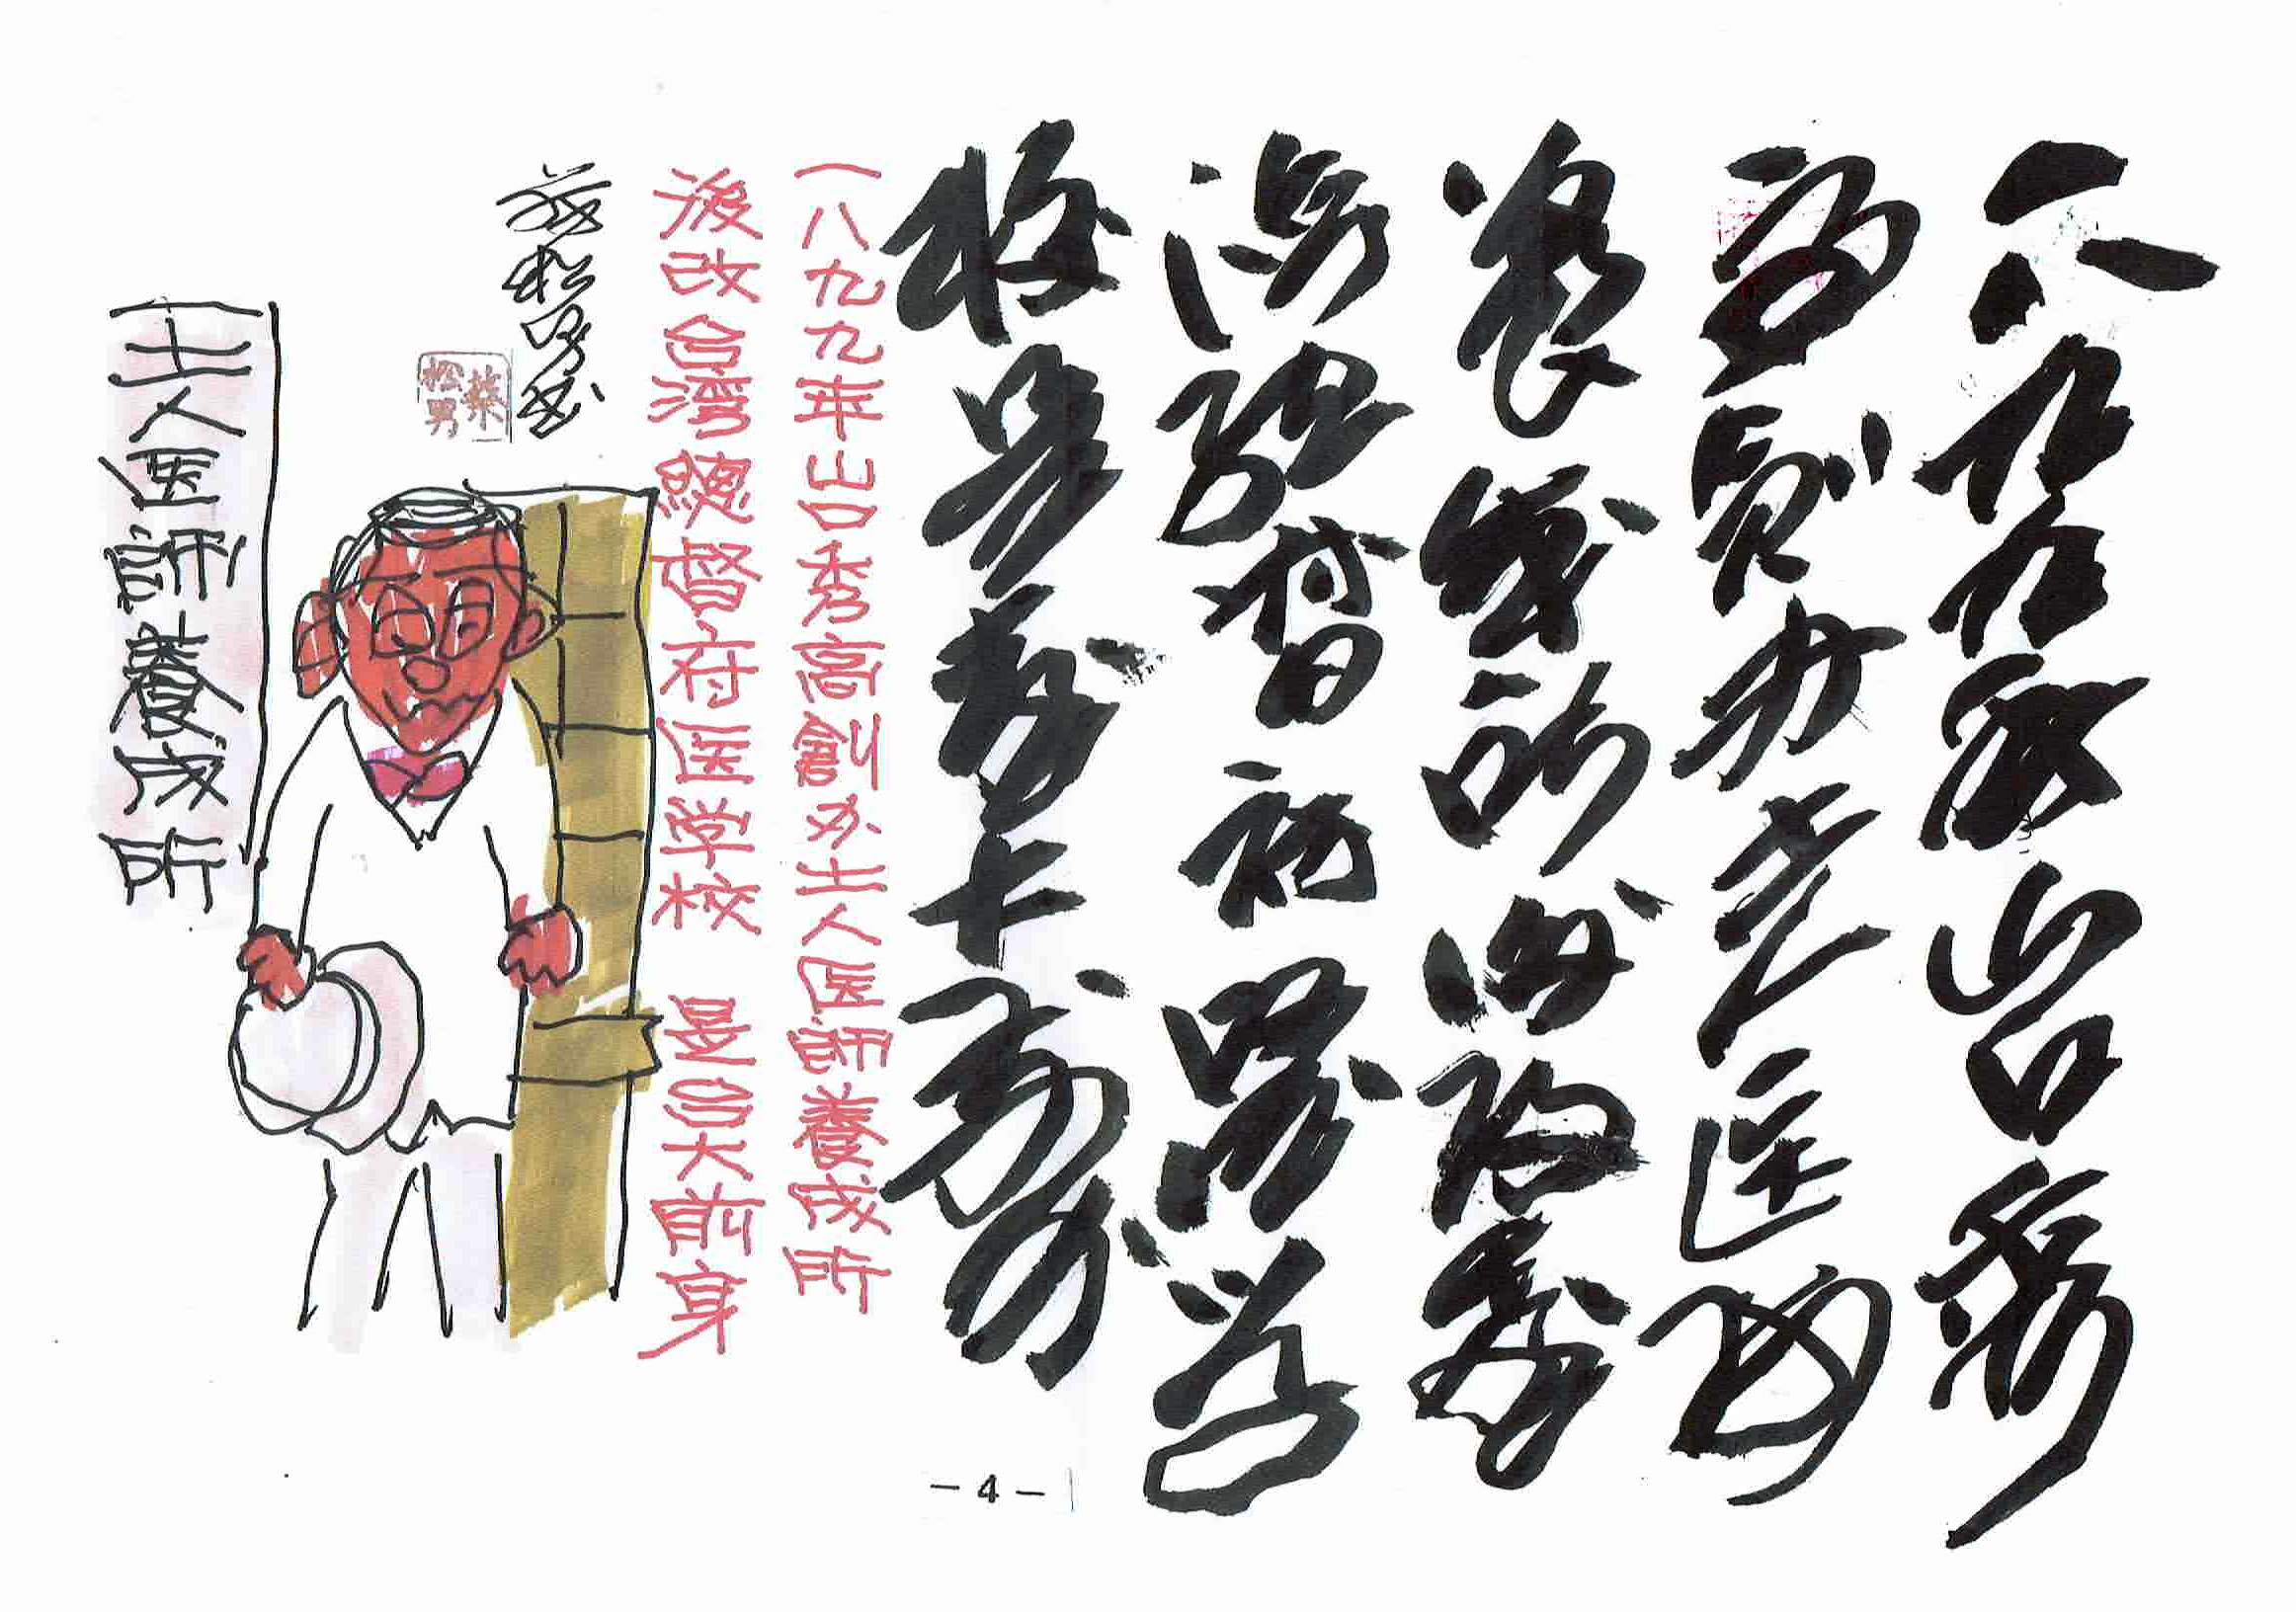 一八九九年山口秀
高創办土人医師
養成所後改臺
湾總督府醫学
校是臺大前身
一八九九年山口秀高創办土人医師養成所
後改台湾總督府医学校 是台大前身
蔡松男書
蔡松男
土人医師養成所
- 4 -